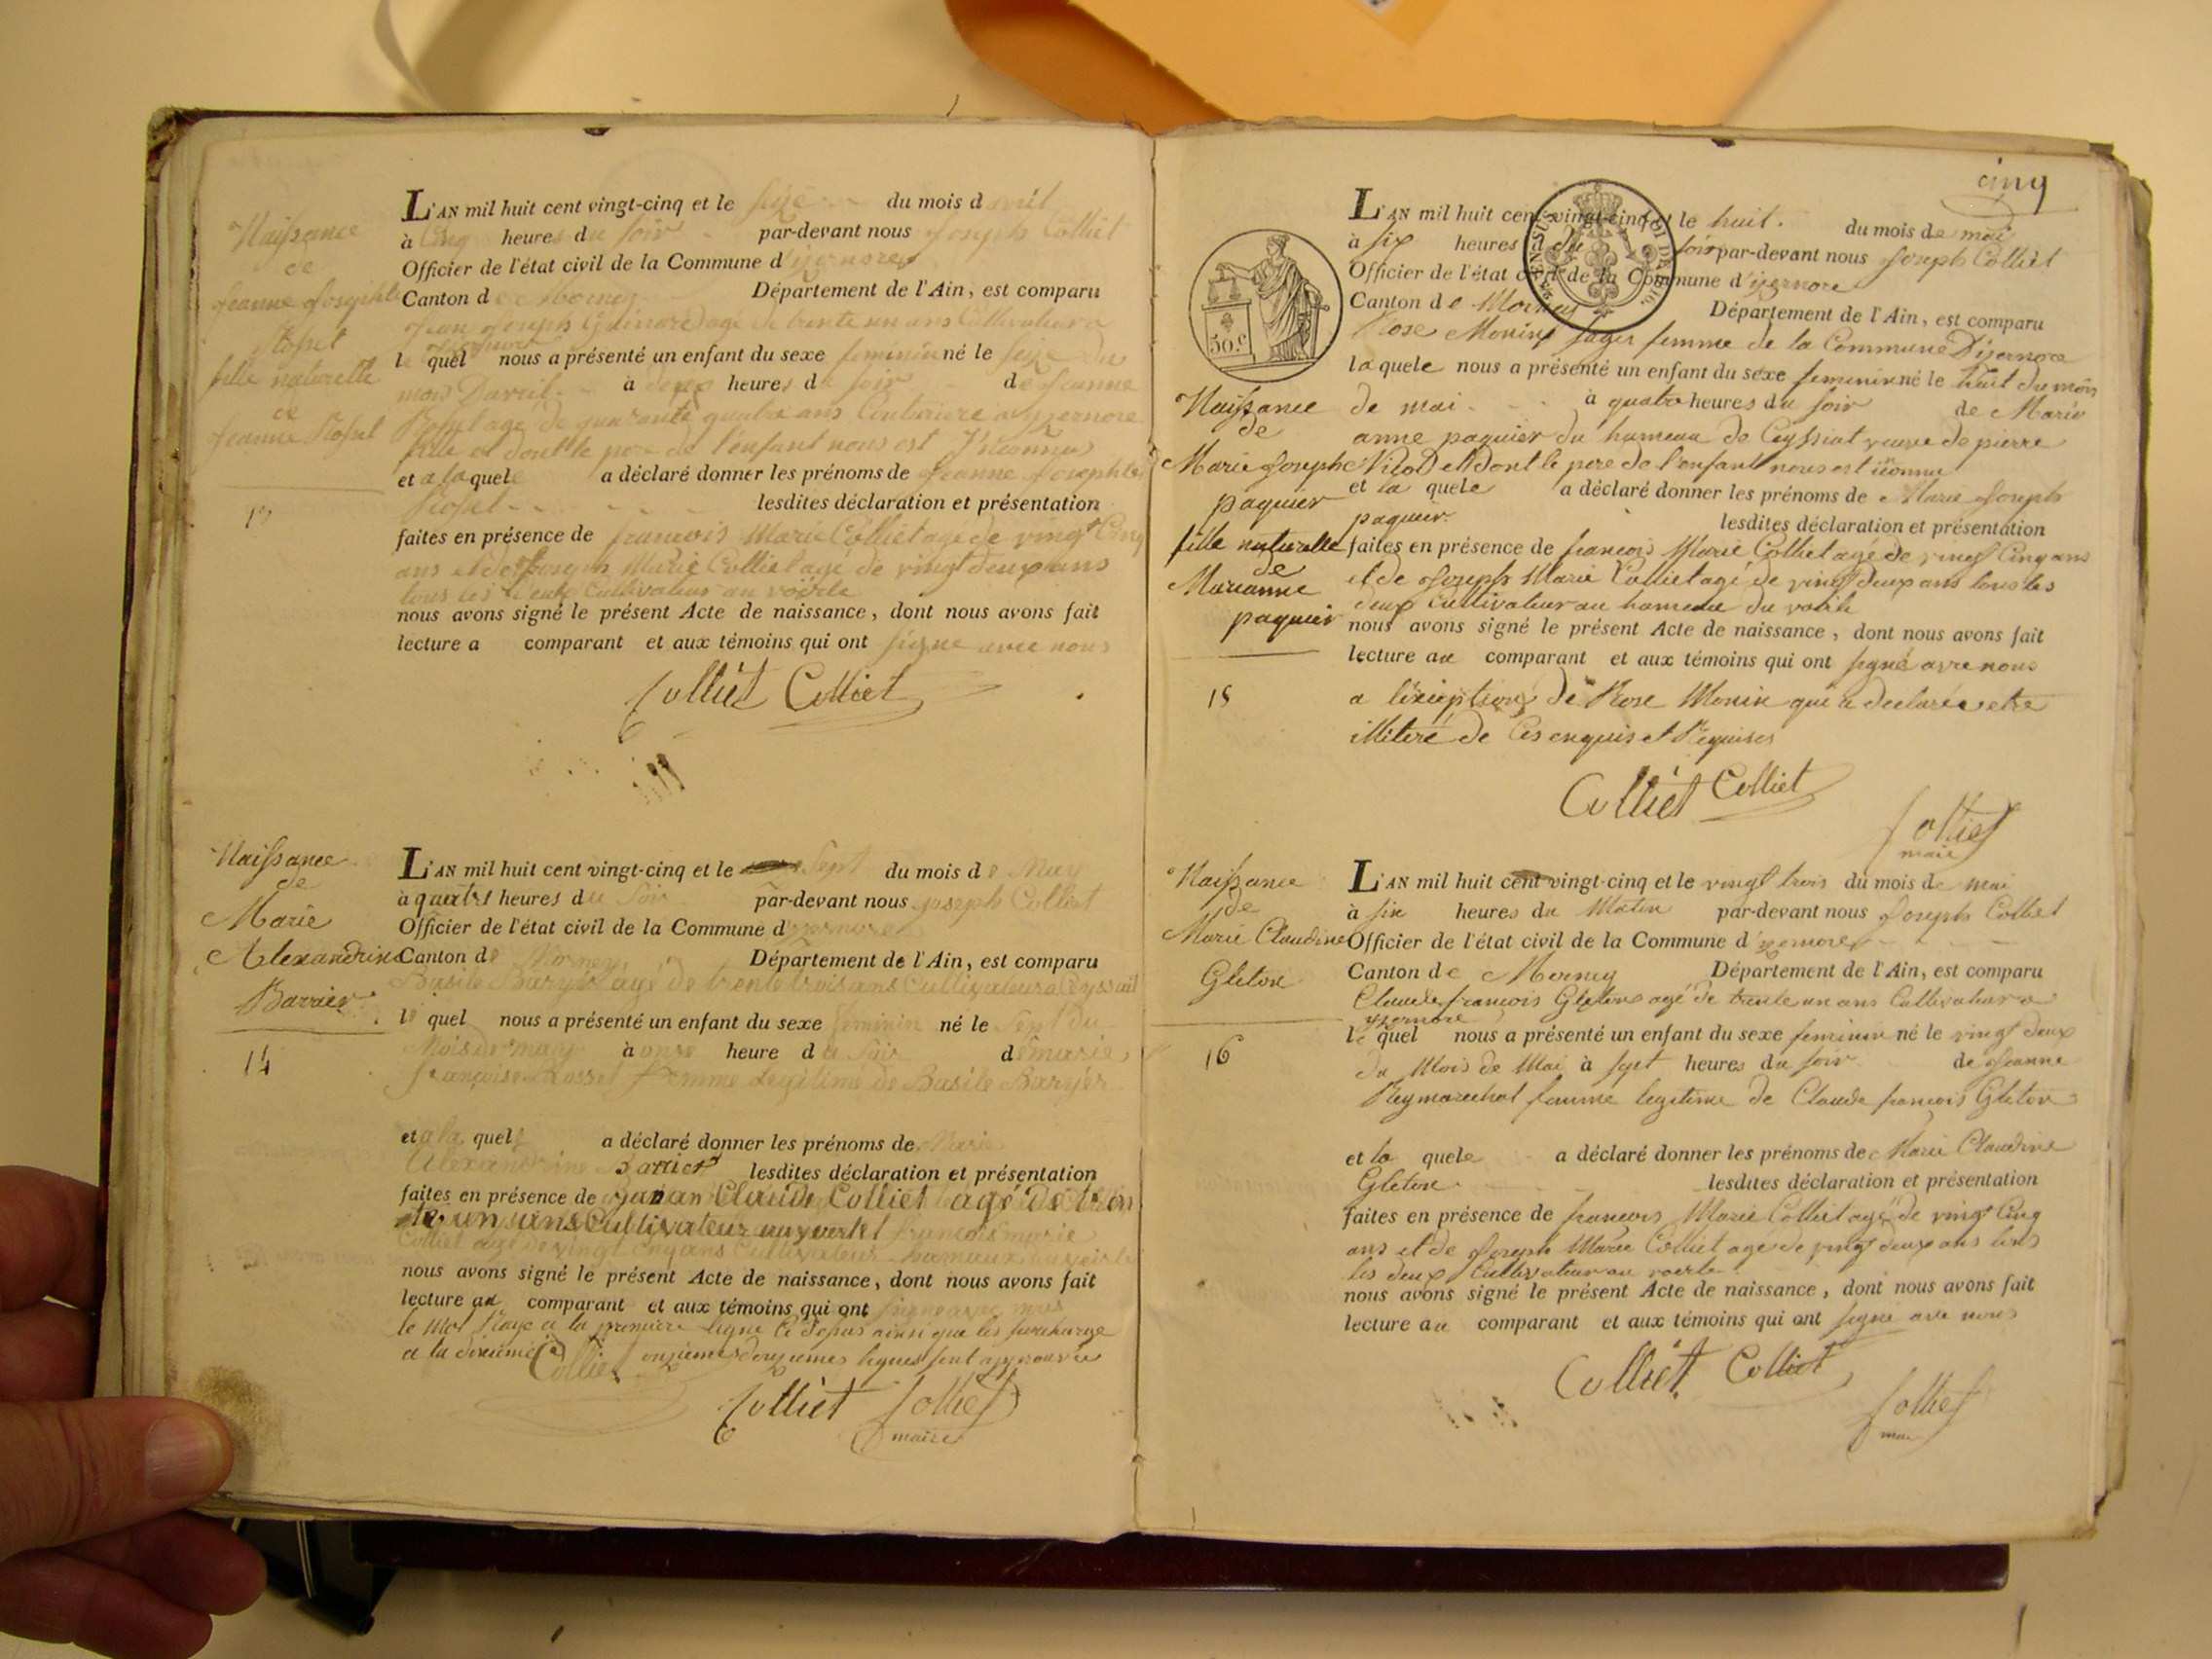 Naissance
de
Jeanne Josephte
Rosset
fille naturelle
de
Jeanne Rosset
L'AN mil huit cent vingt-cinq et le seize du mois d'avril
à cinq heures du soir par-devant nous Joseph Colliet
Officier de l'état civil de la Commune d'izernore
Canton de Moirney Département de l'Ain, est comparu
Jean Joseph agé de trente un ans Cultivateur a
le quel nous a présenté un enfant du sexe feminin né le seize du
mois Davril à deux heures du soir de Jeanne
Rosset age de quarante quatre ans Couturiere a yzernore
fille et dont le pere de l'enfant nous est
et a laquele a déclaré donner les prénoms de Jeanne Josephte
Rosset lesdites déclaration et présentation
faites en présence de francois Marie Colliet agé de vingt Cinq
ans et de Joseph Marie Colliet agé de vingt deux ans
tous les deux Cultivateur au voërle
nous avons signé le présent Acte de naissance, dont nous avons fait
lecture a comparant et aux témoins qui ont signe avec nous
Colliet Colliet
Naissance
de
Marie
Alexandrine
Barrier
14
L'AN mil huit cent vingt-cinq et le sept du mois de May
à quatre heures du Soir par-devant nous joseph Colliet
Officier de l'état civil de la Commune d'yzernore
Canton de Morney Département de l'Ain, est comparu
Basile Baryer agé de trente trois ans Cultivateur a
le quel nous a présenté un enfant du sexe feminin né le Sept du
Mois de may à onze heure du Soir de marie
françoise Rosset femme Legitime de Basile Baryer
et a la quele a déclaré donner les prénoms de Marie
Alexandrine Barrier lesdites déclaration et présentation
faites en présence de Claude Colliet agé de tren
te un ans Cultivateur au et francois marie
Colliet agé de vingt cinq ans Cultivateur
nous avons signé le présent Acte de naissance, dont nous avons fait
lecture au comparant et aux témoins qui ont signe avec nous
le Mot Rayé a la premiere ligne Ci dessus ainsi que les surcharge
a la dixieme onzieme douzieme lignes sont approuvée
Colliet
Colliet Colliet
maire
cinq
50.c
L'AN mil huit cent vingt-cinq et le huit. du mois de mai
à six heures du soir par-devant nous Joseph Colliet
Officier de l'état civil de la Commune d'izernore
Canton de Moirney Département de l'Ain, est comparu
Rose Monin sages femme de la Commune Dizernore
laquele nous a présenté un enfant du sexe feminin né le huit du mois
de mai à quatre heures du soir de Marie
anne paquier du hameau de Ceyssiat veuve de pierre
Vilod et dont le pere de l'enfant nous est
et la quele a déclaré donner les prénoms de Marie Joseph
paquier. lesdites déclaration et présentation
faites en présence de francois Marie Colliet agé de vingt Cinq ans
et de Joseph Marie Colliet agé de vingt deux ans tous les
deux Cultivateur au hameau du voërle
nous avons signé le présent Acte de naissance, dont nous avons fait
lecture au comparant et aux témoins qui ont signé avec nous
a l'exception de Rose Monin qui a declarée etre
illiteré de Ces enquis et Requises
Colliet Colliet
Colliet
maire
Naissance
de
Marie Josephe
paquier
fille naturelle
de
Marianne
paquier
15
Naissance
de
Marie Claudine
Gleton
16
L'AN mil huit cent vingt-cinq et le vingt trois du mois de mai
à six heures du Matin par-devant nous Joseph Colliet
Officier de l'état civil de la Commune d'izernore
Canton de Moirney Département de l'Ain, est comparu
Claude francois Gleton agé de trente un ans Cultivateur a
yzernore
le quel nous a présenté un enfant du sexe feminin né le vingt deux
du Mois de Mai à sept heures du soir de Jeanne
Reymarechal femme legitime de Claude francois Gleton
et la quele a déclaré donner les prénoms de Marie Claudine
Gleton lesdites déclaration et présentation
faites en présence de francois Marie Colliet agé de vingt Cinq
ans et de Joseph Marie Colliet agé de vingt deux ans tous
les deux Cultivateur au voërle
nous avons signé le présent Acte de naissance, dont nous avons fait
lecture au comparant et aux témoins qui ont signé avec nous
Colliet Colliet
Colliet